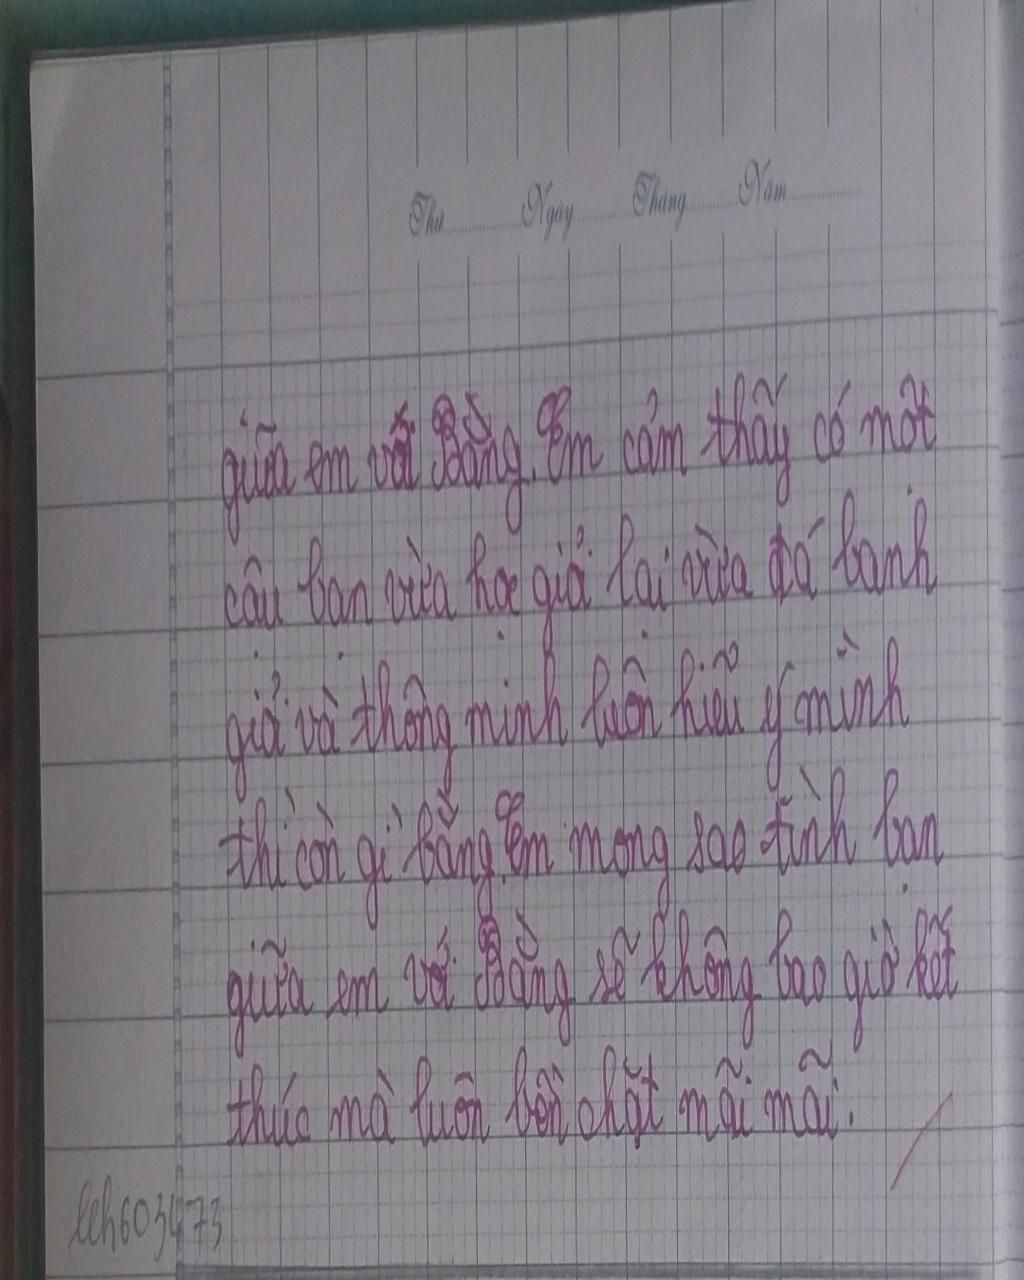 Thứ Ngày Tháng Năm
giữa em với Bằng. Em cảm thấy có một
cậu bạn vừa học giỏi lại vừa đá banh
giỏi và thông minh luôn hiểu ý mình
thì còn gì bằng. Em mong sao tình bạn
giữa em với Bằng sẽ không bao giờ kết
thúc mà luôn bền chặt mãi mãi.
lch603473